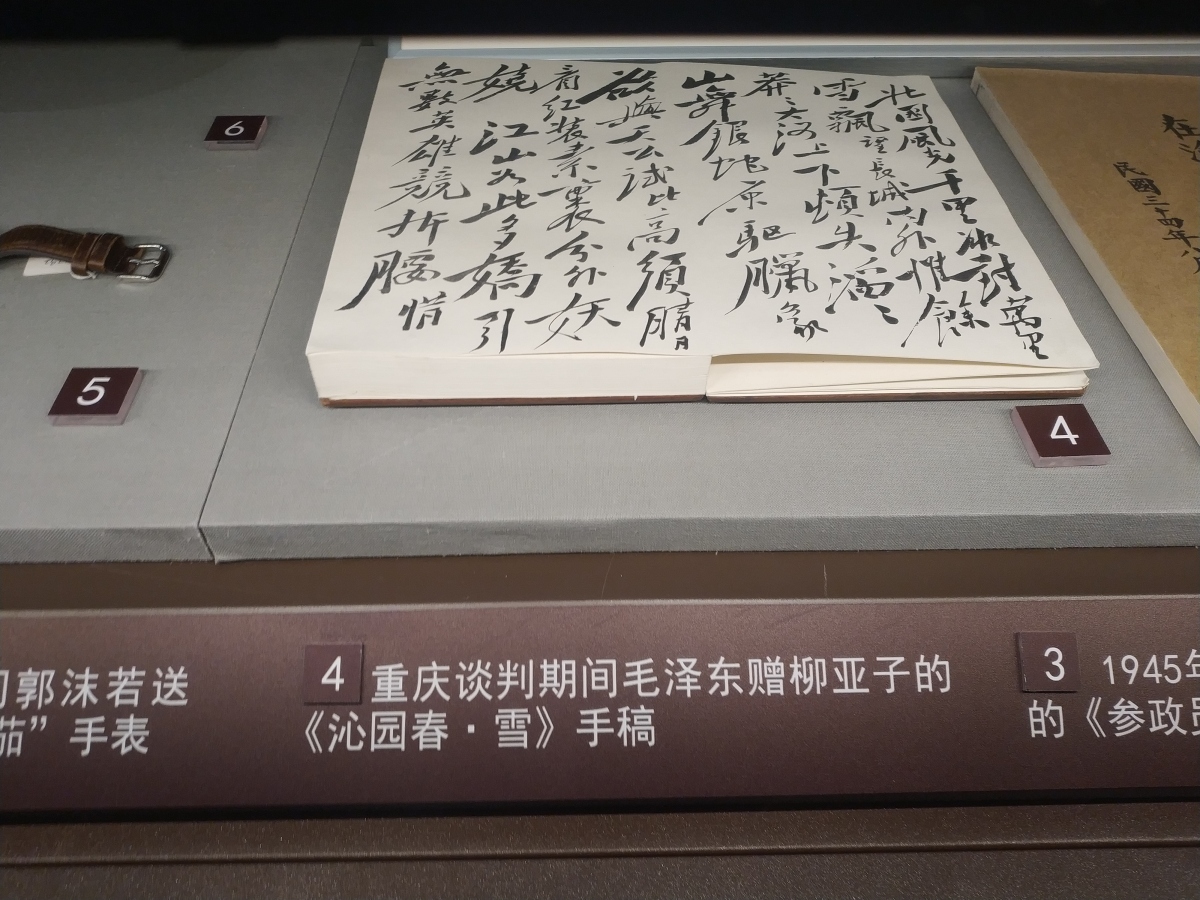 6
5
4
北國風光千里冰封萬里
雪飄望長城內外惟餘
莽〻大河上下頓失滔〻
山舞銀蛇原驅臘象
欲與天公試比高須晴日
看紅裝素裹分外妖
嬈 江山如此多嬌引
無數英雄競折腰惜
民國三十四年八月
郭沫若送
”手表
4 重庆谈判期间毛泽东赠柳亚子的
《沁园春·雪》手稿
3 1945年
的《参政员